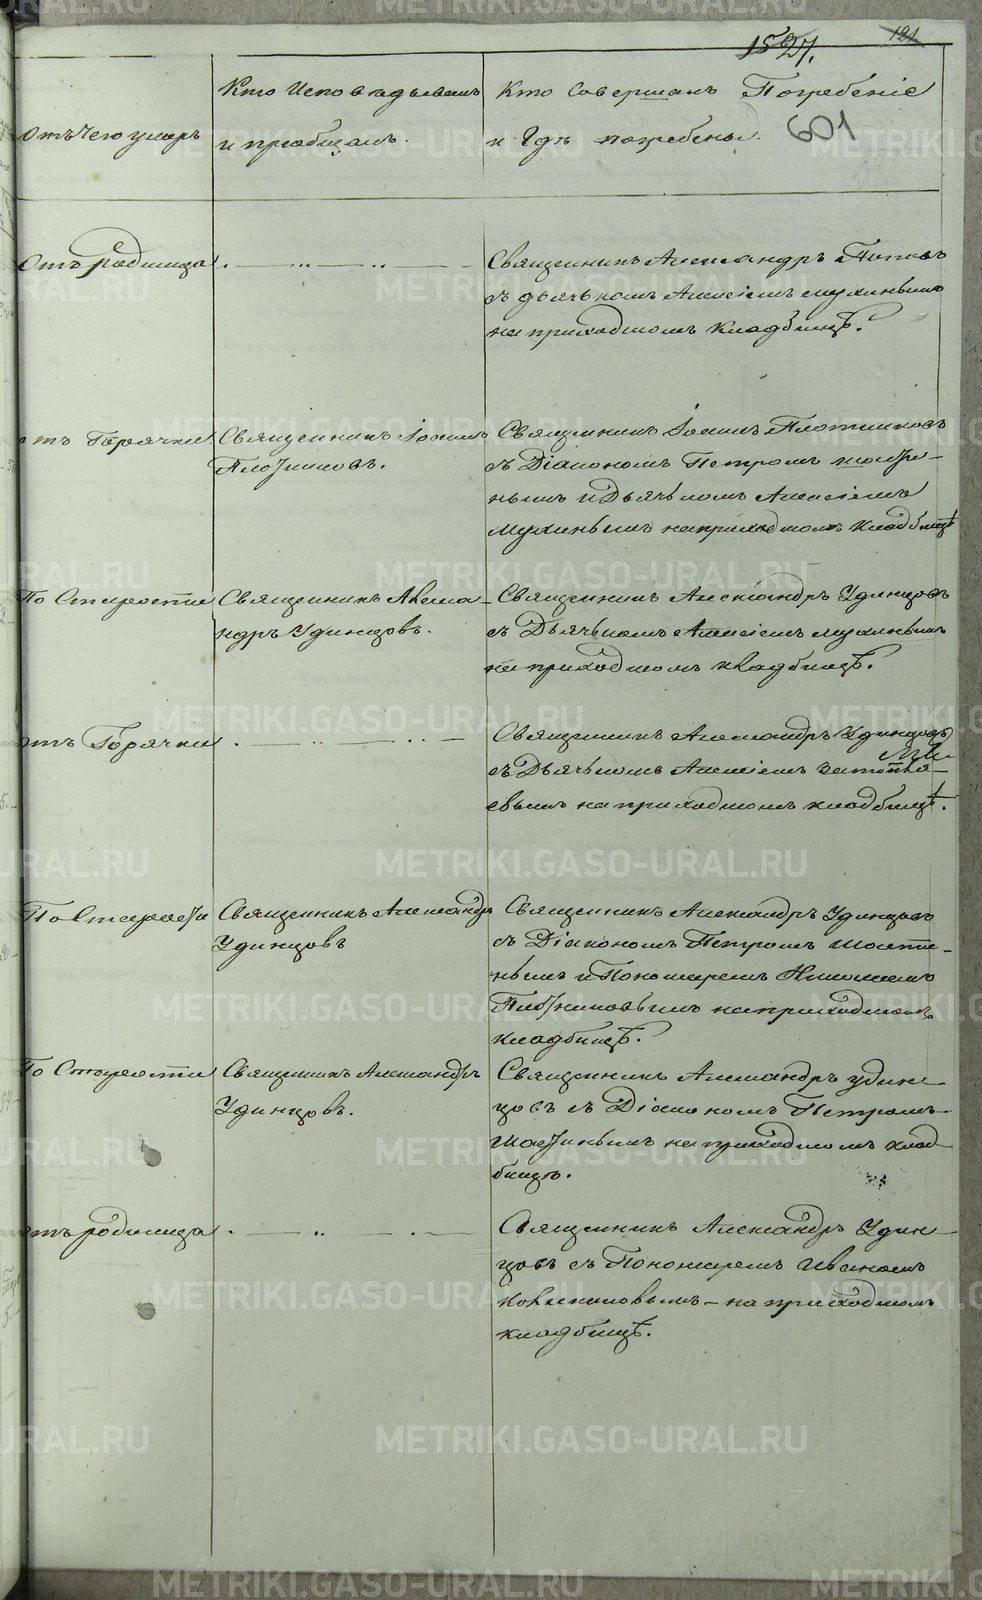 1527. 121
Отъ чего умеръ
Кто Исповѣдывалъ
и пріобщалъ.
Кто Совершалъ Погребеніе
и Гдѣ погребены.
601
Отъ родимца
Священникъ Александръ Поповъ
съ дьячкомъ Алексіемъ Мухинымъ
на приходскомъ кладбищѣ.
отъ Горячки
Священникъ Іоаннъ
Плотниковъ.
Священникъ Іоаннъ Плотниковъ
съ Діакономъ Петромъ
нымъ и Дьячкомъ Алексіемъ
Мухинымъ на приходскомъ кладбищѣ
По Старости
Священникъ Алекса-
ндръ Удинцовъ.
Священникъ Александръ Удинцовъ
съ Дьячкомъ Алексіемъ Мухинымъ
на приходскомъ кладбищѣ.
отъ Горячки
Священникъ Александръ Удинцовъ
съ Дьячкомъ Алексіемъ
евымъ на приходскомъ кладбищѣ.
По Старости
Священникъ Александръ
Удинцовъ
Священникъ Александръ Удинцовъ
съ Діакономъ Петромъ
нымъ и Пономаремъ Николаемъ
Плотниковымъ на приходскомъ
кладбищѣ.
По Старости
Священникъ Александръ
Удинцовъ.
Священникъ Александръ Удин-
цовъ съ Діакономъ Петромъ
на приходскомъ клад-
бищѣ.
отъ родимца
Священникъ Александръ Удин-
цовъ съ Пономаремъ Иваномъ
на приходскомъ
кладбищѣ.
METRIKI.GASO-URAL.RU